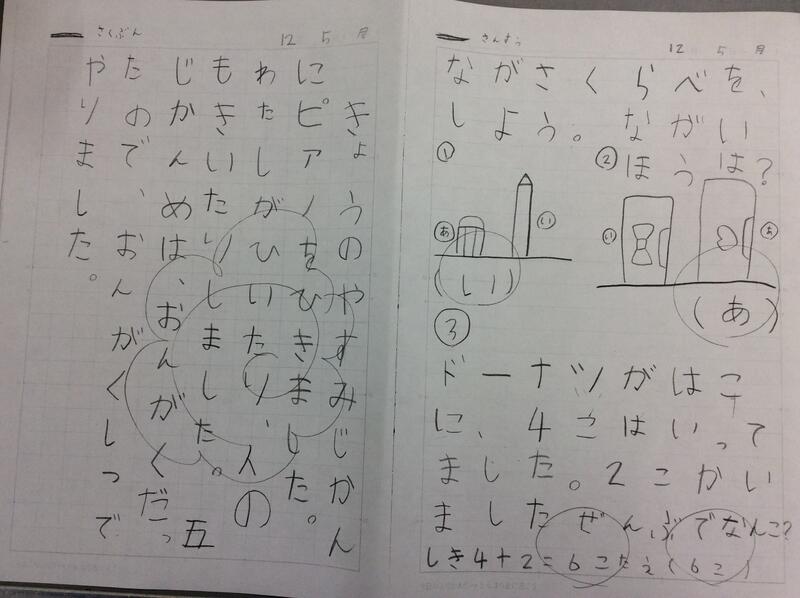 さくぶん
12 5 月
きょうのやすみじかん
にピアノをひきました。
わたしがひいたり、人の
もきいたりしました。五
じかんめは、おんがくだっ
たので、おんがくしつで
やりました。
さんすう
12 5 月
ながさくらべを、
しよう。ながい
ほうは?
①
あ
い
(い)
②
い
あ
(あ)
③
ドーナツがはこ
に、4こはいって
ました。2こかい
ましたぜんぶでなんこ?
しき4+2=6こたえ(6こ)